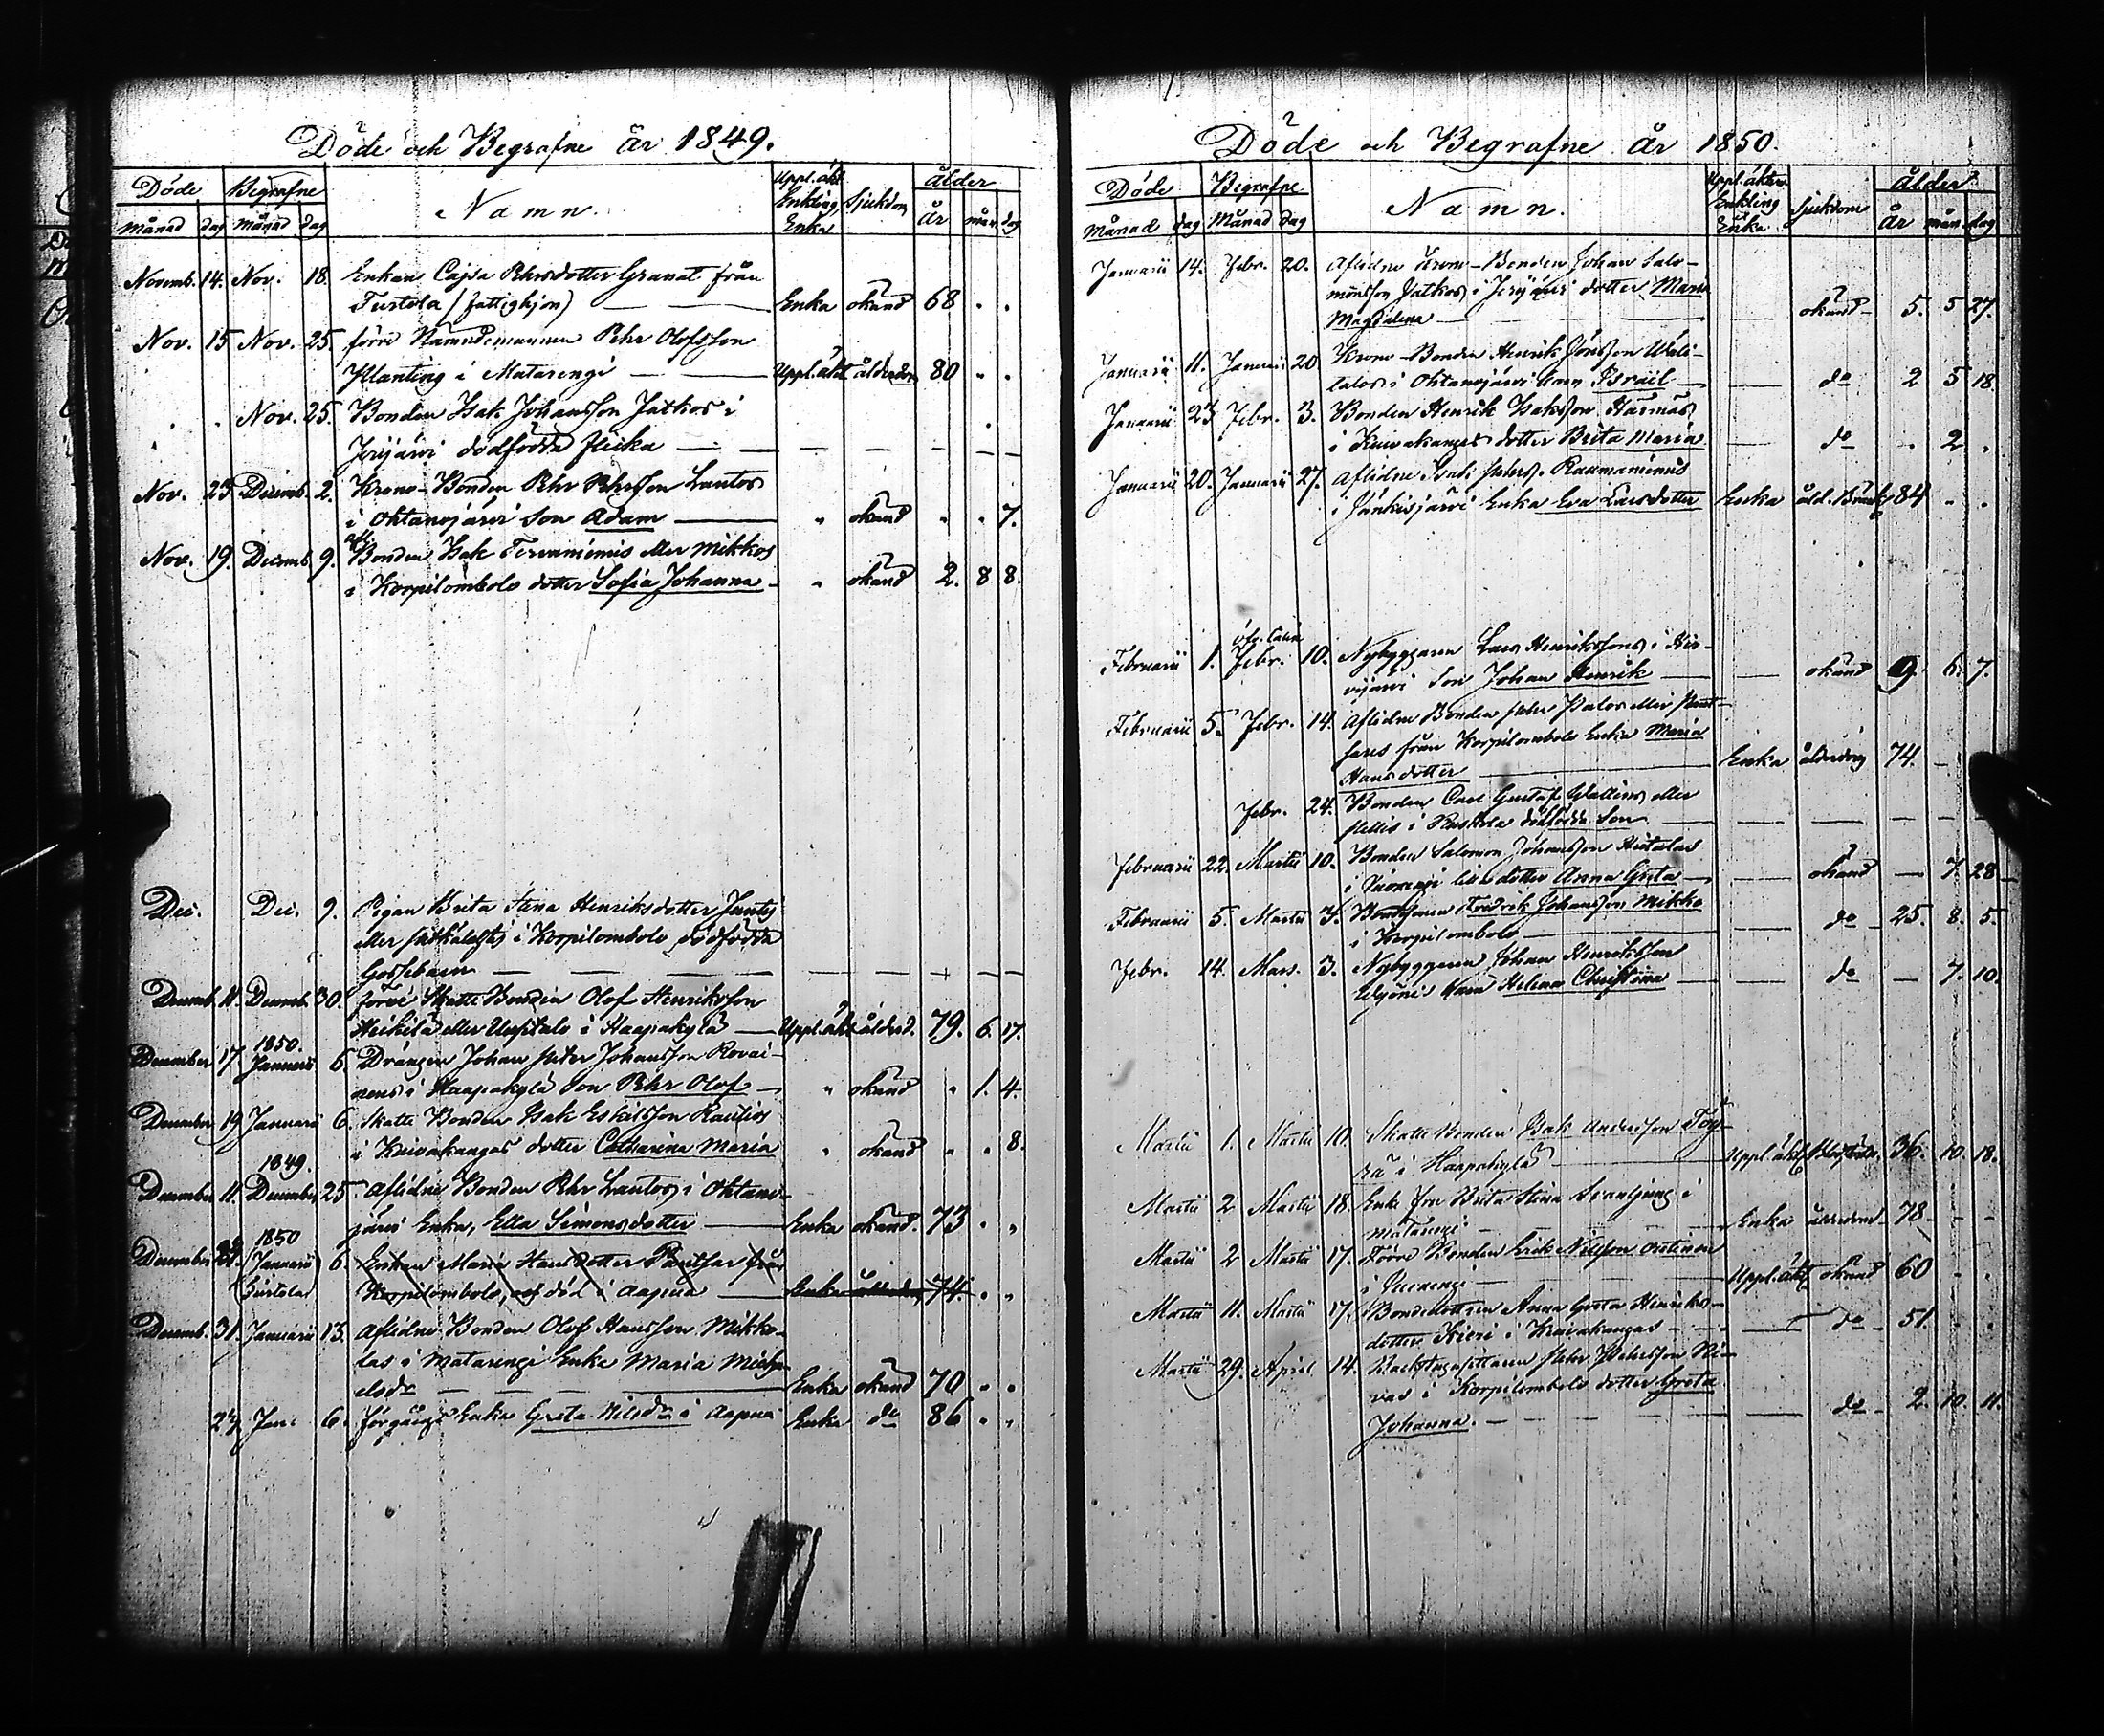 Döde och Begrafne år 1849.
Döde Begrafne Namn. Uppl. äkt. Enkling, Enka Sjukdom ålder
månad dag månad dag år mån. dag
Novemb. 14. Nov. 18. Enkan Cajsa Pehrsdotter Granat från
Turtola (fattighjon) — Enka okänd 68 . .
Nov. 15 Nov. 25. förre Nämndemannen Pehr Olofsson
Planting i Matarengi — Uppl. äkt. ålderdom 80 . .
. . Nov. 25. Bonden Isak Johansson Jatkos i
Jerijärvi dödfödda flicka — — — — —
Nov. 25 Decemb. 2. Krono-Bonden Pehr Pehrsson Lantos
i Ohtanajärvi son Adam — " okänd " . 7.
Nov. 19. Decemb. 9. Bonden Isak Tervaniemis eller Mikkos
i Korpilombolo dotter Sofia Johanna — " okänd 2. 8 8.
Dec. Dec. 9. Pigan Brita Stina Henriksdotter
eller i Korpilombolo dödfödda
Gossebarn — — — — —
Decemb. 11. Decemb. 30. förre Skatte Bonden Olof Henriksson
Heikilä eller i Haapakylä — Uppl. äkt. ålderd. 79. 6. 17.
1850.
December 17. Januarii 6. Drängen Johan Peter Johansson Rovai-
nens i Haapakylä son Pehr Olof — " okänd " 1. 4.
December 19 Januarii 6. Skatte Bonden Isak Eskilsson Rautios
i Kuivakangas dotter Catharina Maria " okänd " . 8.
1849.
December 11. December 25. Aflidne Bonden Pehr Lantos i Ohtana-
järvi Enka, Ella Simonsdotter — Enka okänd. 73 . "
1850
December Januarii 6. Enkan Maria Hansdotter Pantsar från
(Turtola) Korpilombolo, död i Aapua — Enka ålderdom 74. . "
Decemb. 31. Januarii 13. Aflidne Bonden Olof Hansson Mikko-
las i Matarengi Enka Maria Michp-
elsdr — Enka okänd 70 . .
27 Jan. 6. förgångs Enka Greta Nilsdr i Aapua Enka do 86 . .
Döde och Begrafne år 1850.
Döde Begrafne Namn. Uppl. äkten Enkling Enka Sjukdom ålder
Månad dag Månad dag år mån. dag
Januarii 14. Febr. 20. Aflidne Krono-Bonden Johan Salo-
monsson Jatkos i Jerijärvi dotter Maria
Magdalena — — okänd — 5. 5 27.
Januarii 11. Januarii 20 Krono-Bonden Henrik Jönsson Wali-
talos i Ohtanajärvi son Israil — — do 2 5 18.
Januarii 23 Febr. 3. Bonden Henrik Isaksson Harmas
i Kuivakangas dotter Brita Maria — do . 2 .
Januarii 20. Januarii 27. Aflidne Isak Pehrs. Raumaniemis
i Jänkisjärvi Enka Eva Larsdotter Enka åld. Bräck. 84 . .
Februarii 1. Febr. 10. Nybyggaren Lars Henrikssons i Hir-
vijärvi son Johan Henrik — — okänd 9. 6. 7.
Februarii 5. Febr. 14. Aflidne Bonden Peter Palos eller Pant-
sares från Korpilombolo Enka Maria
Hansdotter — Enka ålderdom 74. —
Febr. 24. Bonden Carl Gustaf Wallins eller
i Ruskola dödfödda son — — — — —
Februarii 22. Martii 10. Bonden Salomon Johansson Hietalas
i dotter Anna Greta — — okänd — 7. 28
Februarii 5. Martii 3. Fredrik Johansson Mikko
i Korpilombolo — — do 25. 8. 5.
Febr. 14. Mars. 3. Nybyggaren Johan Henriksson
Helena Christina — — do — 7. 10.
Martii 1. Martii 10. Skatte Bonden Isak Andersson Töy-
rä i Haapakylä — Uppl. äkt. 36. 10. 18.
Martii 2 Martii 18. Enke fru Brita Stina i
Matarengi — Enka ålderdom — 78 — —
Martii 2 Martii 17. Förre Bonden Erik Nilsson
i — Uppl. äkt. okänd 60 . .
Martii 11. Martii 17. Bondedottren Anna Greta Henriks-
dotter Kieri i Kuivakangas — — do — 51. .
Martii 29. April 14. Backstugusittaren Pehr Pehrsson Ni-
vas i Korpilombolo dotter Greta
Johanna. — — do — 2. 10. 11.